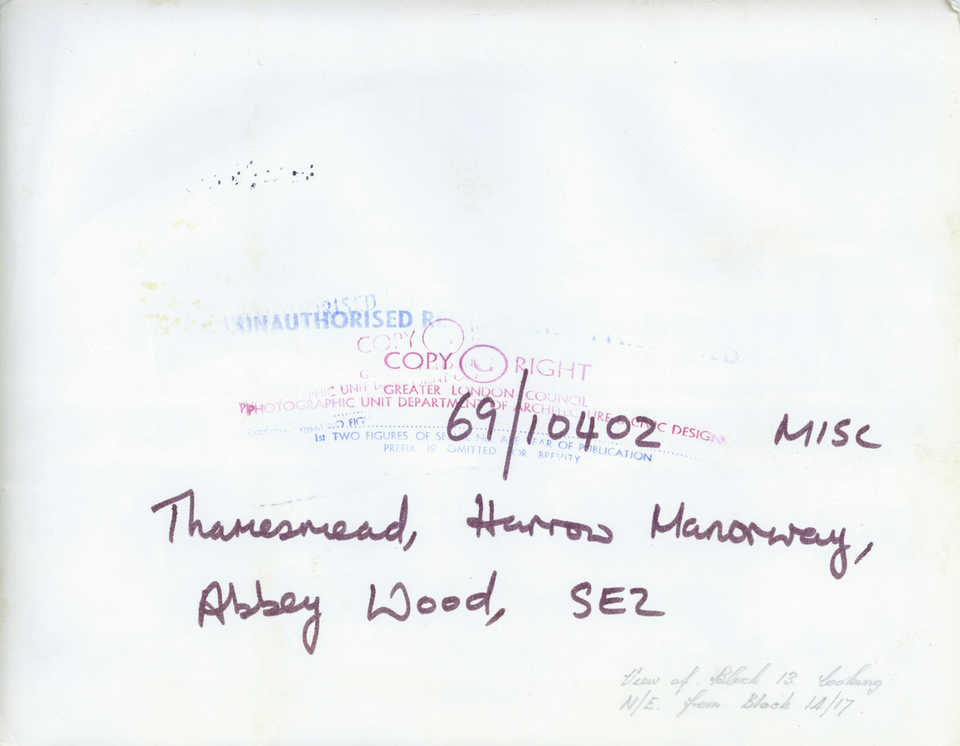 UNAUTHORISED
COPY
COPY © RIGHT
GREATER LONDON COUNCIL
PHOTOGRAPHIC UNIT DEPARTMENT OF ARCHITECTURE CIVIC DESIGN
69/10402 MISC
1st TWO FIGURES OF YEAR OF PUBLICATION
PREFIX 19 OMITTED FOR BREVITY
Thamesmead, Harrow Manorway,
Abbey Wood, SE2
View of Block 13 looking
N/E. from Block 14/17